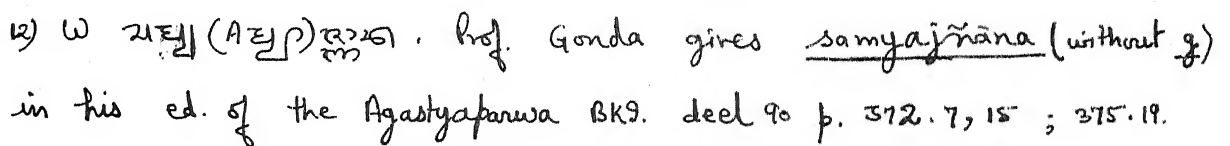 12) W (A ). Prof. Gonda gives samyajñāna (without g)
in his ed. of the Agastyaparwa BKI. deel 90 p. 372.7, 15 ; 375.19.